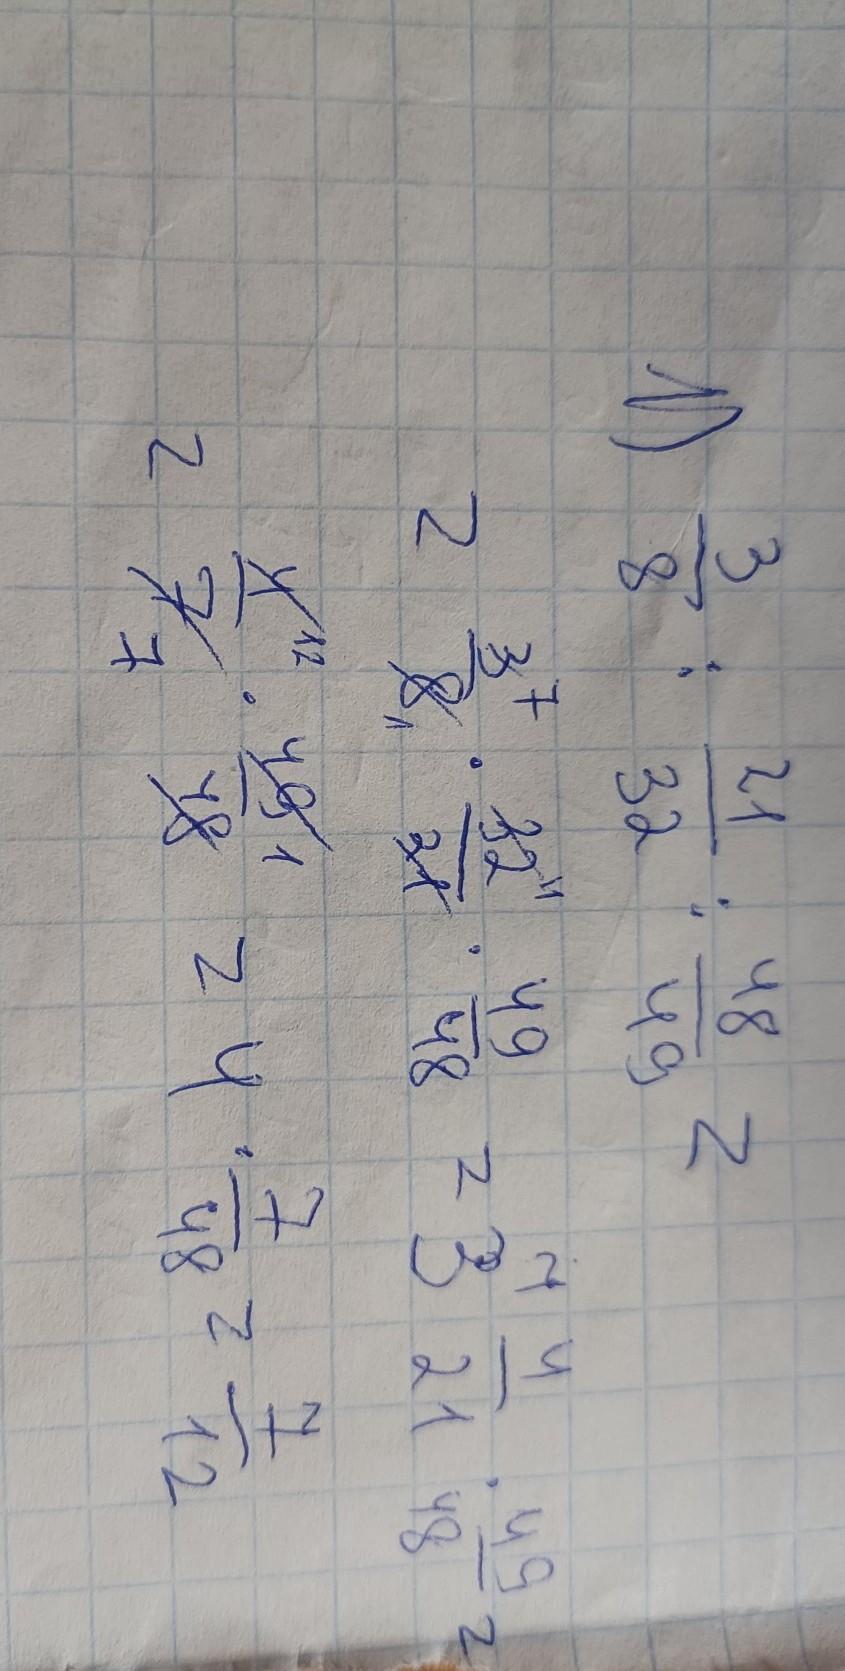 1) 3/8 : 21/32 : 48/49 =
= 3/8 7 1 · 32/21 4 · 49/48 = 3 · 4/21 · 49/48 =
= 4/7 12 7 · 49/48 1 = 4 · 7/48 = 7/12